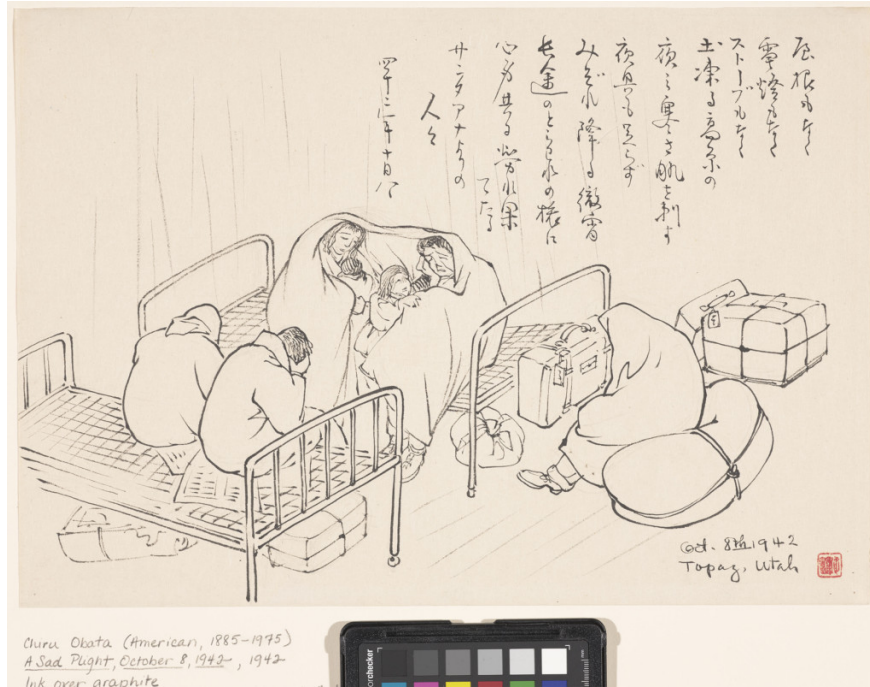 屋根もなく
電燈もなく
ストーブもなく
土凍る高原の
夜 寒さ肌を刺す
夜具も足らず
みぞれ降る徹宵
長途のとらわれの旅に
心身共に労れ果
てたる
サンタアナよりの
人々
四十二年十月八
Oct. 8th 1942
Topaz, Utah
Chiru Obata (American, 1885-1975)
A Sad Plight, October 8, 1942, 1942
Ink over graphite